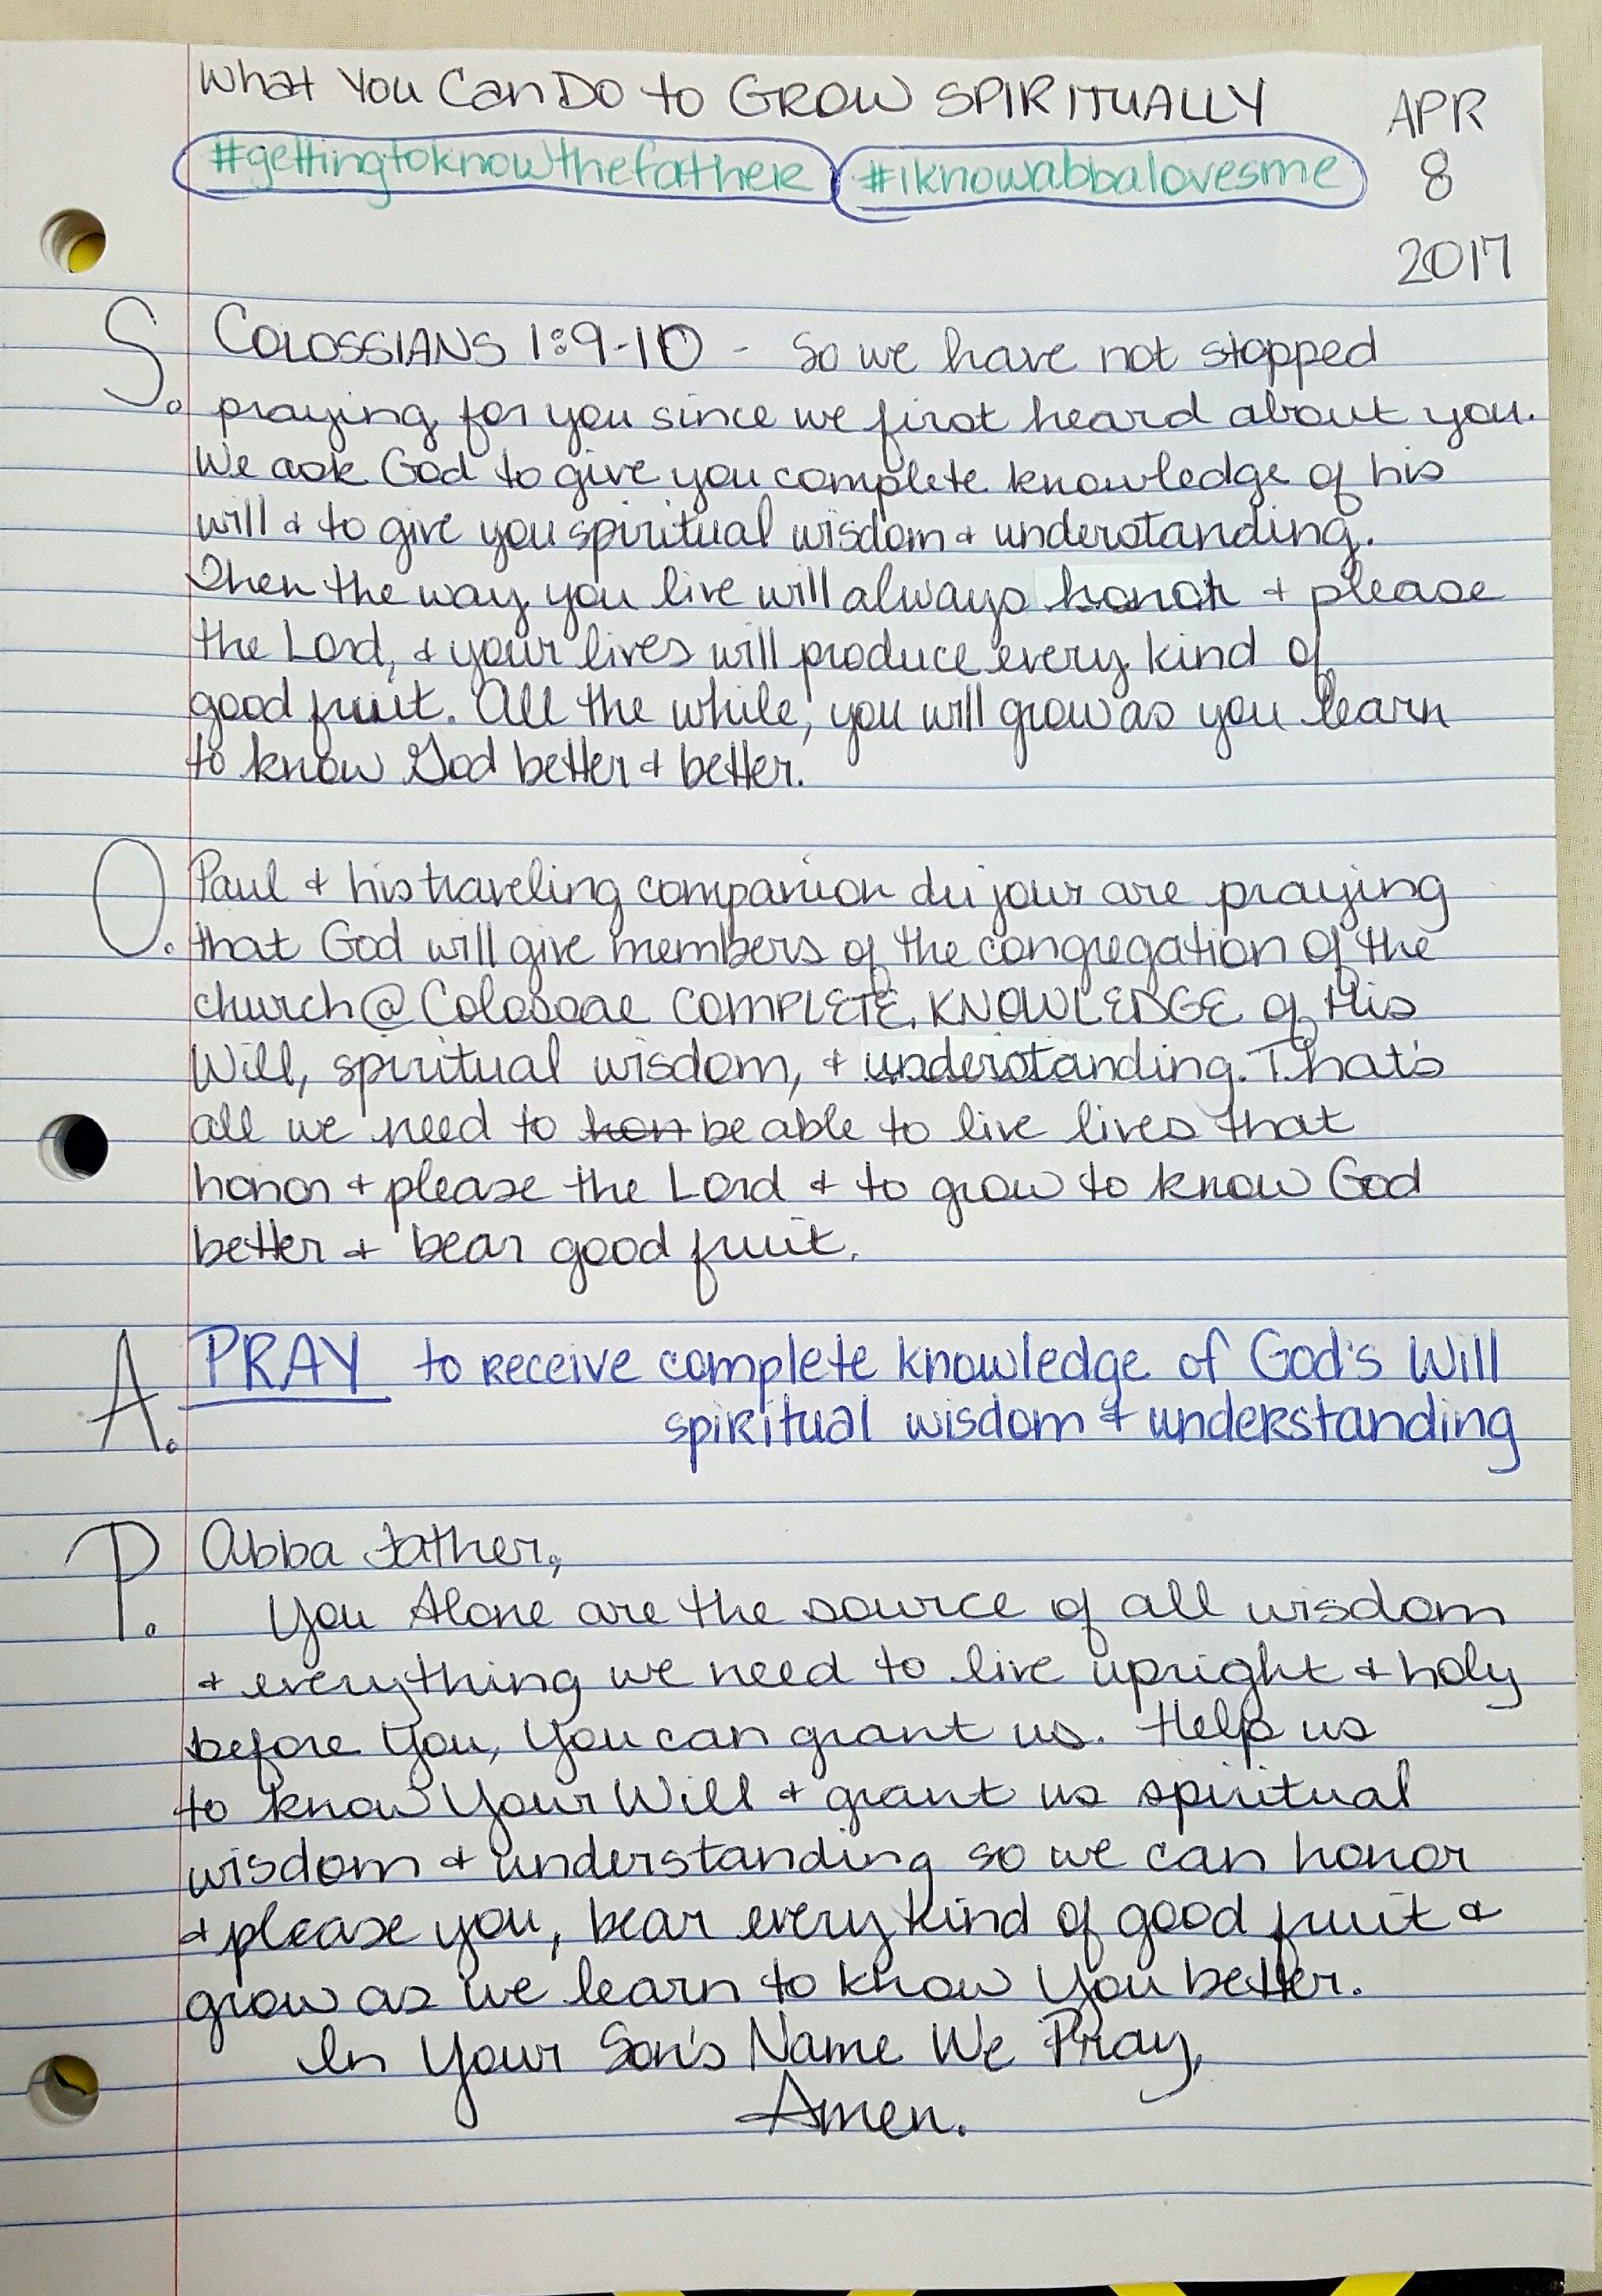 What You Can Do to GROW SPIRITUALLY
APR
8
2017
#gettingtoknowthefather #iknowabbalovesme
S. COLOSSIANS 1:9-10 - So we have not stopped
praying for you since we first heard about you.
We ask God to give you complete knowledge of his
will & to give you spiritual wisdom & understanding.
Then the way you live will always honor & please
the Lord, & your lives will produce every kind of
good fruit. All the while, you will grow as you learn
to know God better & better.
O. Paul & his traveling companion du jour are praying
that God will give members of the congregation of the
church @ Colossae COMPLETE KNOWLEDGE of His
Will, spiritual wisdom, & understanding. That's
all we need to hon be able to live lives that
honor & please the Lord & to grow to know God
better & bear good fruit.
A. PRAY to receive complete knowledge of God's Will
spiritual wisdom & understanding
P. Abba Father,
You Alone are the source of all wisdom
& everything we need to live upright & holy
before You, You can grant us. Help us
to know Your Will & grant us spiritual
wisdom & understanding so we can honor
& please you, bear every kind of good fruit &
grow as we learn to know You better.
In Your Son's Name We Pray,
Amen.